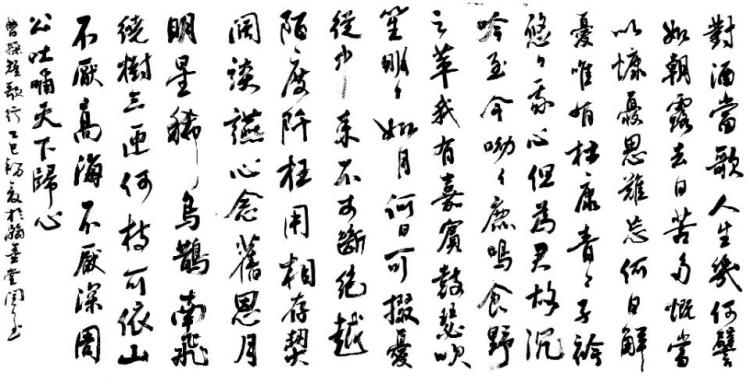 對酒當歌人生幾何譬
如朝露去日苦多慨當
以慷憂思難忘何日解
憂唯有杜康青々子衿
悠々我心但為君故沉
吟至今呦々鹿鳴食野
之苹我有嘉賓鼓瑟吹
笙明々如月何日可掇憂
從中来不可斷絕越
陌度阡枉用相存契
闊談讌心念舊恩月
明星稀烏鵲南飛
繞樹三匝何枝可依山
不厭高海不厭深周
公吐哺天下歸心
曹操短歌行乙巳初夏於翰墨堂